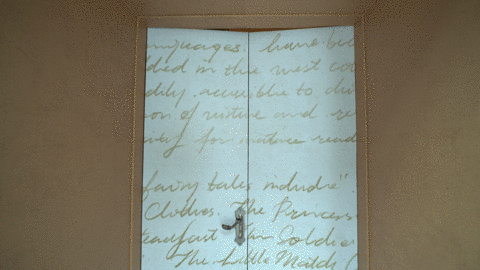 languages. have be
ded in the west co
dily accessible to chi
on of virtue and re
for instance read
fairy tales include".
Clothes. The Princess
teadfast Tin Soldier
The Little Match G